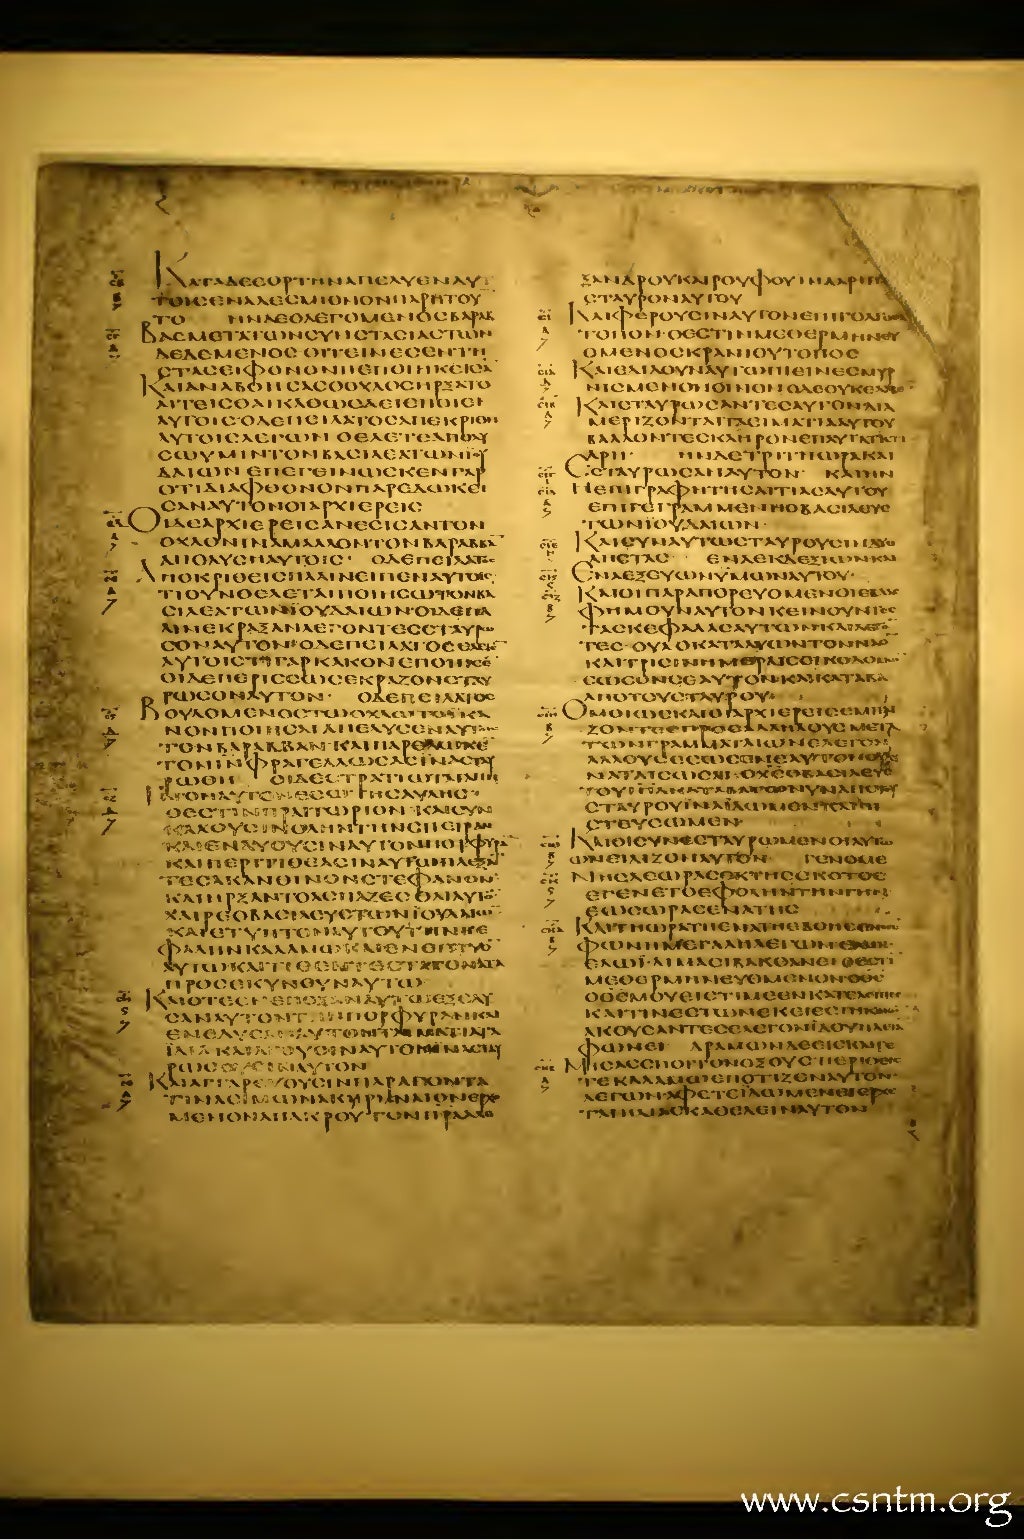 ΚΑΤΑΔΕΕΟΡΤΗΝΑΠΕΛΥΕΝΑΥ
ΤΟΙϹΕΝΑΔΕϹΜΙΟΝΟΝΠΑΡΗΤΟΥ
ΤΟ ΗΝΔΕΟΛΕΓΟΜΕΝΟϹΒΑΡΑΒ
ΒΑϹΜΕΤΑΤΩΝϹΥΝϹΤΑϹΙΑϹΤΩΝ
ΔΕΔΕΜΕΝΟϹΟΙΤΕΙΝΕϹΕΝΤΗ
ϹΤΑϹΕΙΦΟΝΟΝΠΕΠΟΙΗΚΕΙϹΑ
ΚΑΙΑΝΑΒΟΗϹΑϹΟΟΧΛΟϹΗΡΞΑΤΟ
ΑΙΤΕΙϹΘΑΙΚΑΘΩϹΑΕΙΕΠΟΙΕΙ
ΑΥΤΟΙϹΟΔΕΠΕΙΛΑΤΟϹΑΠΕΚΡΙΘΗ
ΑΥΤΟΙϹΛΕΓΩΝΘΕΛΕΤΕΑΠΟΛΥ
ϹΩΥΜΙΝΤΟΝΒΑϹΙΛΕΑΤΩΝΙΟΥ
ΔΑΙΩΝΕΠΕΓΕΙΝΩϹΚΕΝΓΑΡ
ΟΤΙΔΙΑΦΘΟΝΟΝΠΑΡΕΔΩΚΕΙ
ϹΑΝΑΥΤΟΝΟΙΑΡΧΙΕΡΕΙϹ
ΟΙΔΕΑΡΧΙΕΡΕΙϹΑΝΕϹΙϹΑΝΤΟΝ
ΟΧΛΟΝΙΝΑΜΑΛΛΟΝΤΟΝΒΑΡΑΒΒΑ
ΑΠΟΛΥϹΗΑΥΤΟΙϹ· ΟΔΕΠΕΙΛΑΤΟϹ
ΑΠΟΚΡΙΘΕΙϹΠΑΛΙΝΕΙΠΕΝΑΥΤΟΙϹ
ΤΙΟΥΝΘΕΛΕΤΑΙΠΟΙΗϹΩΤΟΝΒΑ
ϹΙΛΕΑΤΩΝΪΟΥΔΑΙΩΝ·ΟΙΔΕΠΑ
ΛΙΝΕΚΡΑΞΑΝΛΕΓΟΝΤΕϹϹΤΑΥΡΩ
ϹΟΝΑΥΤΟΝ·ΟΔΕΠΕΙΛΑΤΟϹΕΛΕΓΕ
ΑΥΤΟΙϹΤΙΓΑΡΚΑΚΟΝΕΠΟΙΗϹΕ
ΟΙΔΕΠΕΡΙϹϹΩϹΕΚΡΑΖΟΝϹΤΑΥ
ΡΩϹΟΝΑΥΤΟΝ· ΟΔΕΠΕΙΛΑΤΟϹ
ΒΟΥΛΟΜΕΝΟϹΤΩΟΧΛΩΤΟΙΚΑ
ΝΟΝΠΟΙΗϹΑΙΑΠΕΛΥϹΕΝΑΥΤΟΙϹ
ΤΟΝΒΑΡΑΒΒΑΝ·ΚΑΙΠΑΡΕΔΩΚΕ
ΤΟΝΙΝΦΡΑΓΕΛΛΩϹΑϹΙΝΑϹΤΑΥ
ΡΩΘΗ ΟΙΔΕϹΤΡΑΤΙΩΤΑΙΑΠΗ
ΓΑΓΟΝΑΥΤΟΝΕϹΩΤΗϹΑΥΛΗϹ
ΟΕϹΤΙΝΠΡΑΙΤΩΡΙΟΝ·ΚΑΙϹΥΝ
ΚΑΛΟΥϹΙΝΟΛΗΝΤΗΝϹΠΕΙΡΑΝ
ΚΑΙΕΝΔΥΟΥϹΙΝΑΥΤΟΝΠΟΡΦΥΡΑ
ΚΑΙΠΕΡΙΤΙΘΕΑϹΙΝΑΥΤΩΠΛΕΞΑΝ
ΤΕϹΑΚΑΝΘΙΝΟΝϹΤΕΦΑΝΟΝ·
ΚΑΙΗΡΞΑΝΤΟΑϹΠΑΖΕϹΘΑΙΑΥΤΟ
ΧΑΙΡΕΟΒΑϹΙΛΕΥϹΤΩΝΪΟΥΔΑΙΩ
ΚΑΙΕΤΥΠΤΟΝΑΥΤΟΥΤΗΝΚΕ
ΦΑΛΗΝΚΑΛΑΜΩΚΑΙΕΝΕΠΤΥΟ
ΑΥΤΩΚΑΙΤΙΘΕΝΤΕϹΤΑΓΟΝΑΤΑ
ΠΡΟϹΕΚΥΝΟΥΝΑΥΤΩ
ΚΑΙΟΤΕΕΝΕΠΕΞΑΝΑΥΤΩΕΞΕΔΥ
ϹΑΝΑΥΤΟΝΤΗΝΠΟΡΦΥΡΑΝΚΑΙ
ΕΝΕΔΥϹΑΝΑΥΤΟΝΤΑΪΜΑΤΙΑΤΑ
ΪΔΙΑΚΑΙΑΓΟΥϹΙΝΑΥΤΟΝΙΝΑϹΤΑΥ
ΡΩϹΟΥϹΙΝΑΥΤΟΝ
ΚΑΙΑΓΓΑΡΕΥΟΥϹΙΝΠΑΡΑΓΟΝΤΑ
ΤΙΝΑϹΙΜΩΝΑΚΥΡΗΝΑΙΟΝΕΡΧΟ
ΜΕΝΟΝΑΠΑΓΡΟΥΤΟΝΠΡΑΑΛΕ
ΞΑΝΔΡΟΥΚΑΙΡΟΥΦΟΥΙΝΑΑΡΗΤΟ
ϹΤΑΥΡΟΝΑΥΤΟΥ
ΚΑΙΦΕΡΟΥϹΙΝΑΥΤΟΝΕΠΙΓΟΛΓΟΘΑ
ΤΟΠΟΝ·ΟΕϹΤΙΝΜΕΘΕΡΜΗΝΕΥ
ΟΜΕΝΟϹΚΡΑΝΙΟΥΤΟΠΟϹ
ΚΑΙΕΔΙΔΟΥΝΑΥΤΩΠΙΕΙΝΕϹΜΥΡ
ΝΙϹΜΕΝΟΝΟΙΝΟΝΟΔΕΟΥΚΕΛΑΒΕ·
ΚΑΙϹΤΑΥΡΩϹΑΝΤΕϹΑΥΤΟΝΔΙΑ
ΜΕΡΙΖΟΝΤΑΙΤΑΪΜΑΤΙΑΑΥΤΟΥ
ΒΑΛΛΟΝΤΕϹΚΛΗΡΟΝΕΠΑΥΤΑΤΙϹΤΙ
ΑΡΗ· ΗΝΔΕΤΡΙΤΗΩΡΑΚΑΙ
ΕϹΤΑΥΡΩϹΑΝΑΥΤΟΝ· ΚΑΙΗΝ
ΗΕΠΙΓΡΑΦΗΤΗϹΑΙΤΙΑϹΑΥΤΟΥ
ΕΠΙΓΕΓΡΑΜΜΕΝΗΟΒΑϹΙΛΕΥϹ
ΤΩΝΪΟΥΔΑΙΩΝ·
ΚΑΙϹΥΝΑΥΤΩϹΤΑΥΡΟΥϹΙΝΔΥΟ
ΛΗϹΤΑϹ· ΕΝΑΕΚΔΕΞΙΩΝΚΑΙ
ΕΝΑΕΞΕΥΩΝΥΜΩΝΑΥΤΟΥ·
ΚΑΙΟΙΠΑΡΑΠΟΡΕΥΟΜΕΝΟΙΕΒΛΑϹ
ΦΗΜΟΥΝΑΥΤΟΝΚΕΙΝΟΥΝΤΕϹ
ΤΑϹΚΕΦΑΛΑϹΑΥΤΩΝΚΑΙΛΕΓΟΝ
ΤΕϹ·ΟΥΑΟΚΑΤΑΛΥΩΝΤΟΝΝΑΟ
ΚΑΙΤΡΙϹΙΝΗΜΕΡΑΙϹΟΙΚΟΔΟΜΩ
ϹΩϹΟΝϹΕΑΥΤΟΝΚΑΙΚΑΤΑΒΑ
ΑΠΟΤΟΥϹΤΑΥΡΟΥ·
ΟΜΟΙΩϹΚΑΙΟΙΑΡΧΙΕΡΕΙϹΕΜΠΑΙ
ΖΟΝΤΕϹΠΡΟϹΑΛΛΗΛΟΥϹΜΕΤΑ
ΤΩΝΓΡΑΜΜΑΤΑΙΩΝΕΛΕΓΟΝ
ΑΛΛΟΥϹΕϹΩϹΕΝΕΑΥΤΟΝΟΥΔΥ
ΝΑΤΑΙϹΩϹΑΙ·ΟΧϹΟΒΑϹΙΛΕΥϹ
ΤΟΥΙΗΛΚΑΤΑΒΑΤΩΝΥΝΑΠΟΤΟΥ
ϹΤΑΥΡΟΥΪΝΑΪΔΩΜΕΝΚΑΙΠΙ
ϹΤΕΥϹΩΜΕΝ·
ΚΑΙΟΙϹΥΝΕϹΤΑΥΡΩΜΕΝΟΙΑΥΤΩ
ΩΝΕΙΔΙΖΟΝΑΥΤΟΝ· ΓΕΝΟΜΕ
ΝΗϹΔΕΩΡΑϹΕΚΤΗϹϹΚΟΤΟϹ
ΕΓΕΝΕΤΟΕΦΟΛΗΝΤΗΝΓΗΝ
ΕΩϹΩΡΑϹΕΝΑΤΗϹ
ΚΑΙΤΗΩΡΑΤΗΕΝΑΤΗΕΒΟΗϹΕΝ
ΦΩΝΗΜΕΓΑΛΗΛΕΓΩΝΕΛΩΙ·
ΕΛΩΪ·ΛΙΜΑϹΙΒΑΚΘΑΝΕΙΟΕϹΤΙ
ΜΕΘΕΡΜΗΝΕΥΟΜΕΝΟΝΟΘϹ
ΟΘϹΜΟΥΕΙϹΤΙΜΕΕΝΚΑΤΕΛΙΠΕϹ
ΚΑΙΤΙΝΕϹΤΩΝΕΚΕΙΕϹΤΗΚΟΤΩ
ΑΚΟΥϹΑΝΤΕϹΕΛΕΓΟΝΪΔΟΥΗΛΕΙΑ
ΦΩΝΕΙ ΔΡΑΜΩΝΔΕΕΙϹΚΑΙΓΕ
ΜΙϹΑϹϹΠΟΓΓΟΝΟΞΟΥϹΠΕΡΙΘΕΙϹ
ΤΕΚΑΛΑΜΩΕΠΟΤΙΖΕΝΑΥΤΟΝ·
ΛΕΓΩΝ·ΑΦΕΤΕΪΔΩΜΕΝΕΙΕΡΧΕ
ΤΑΙΗΛΙΑϹΚΑΘΕΛΕΙΝΑΥΤΟΝ
www.csntm.org